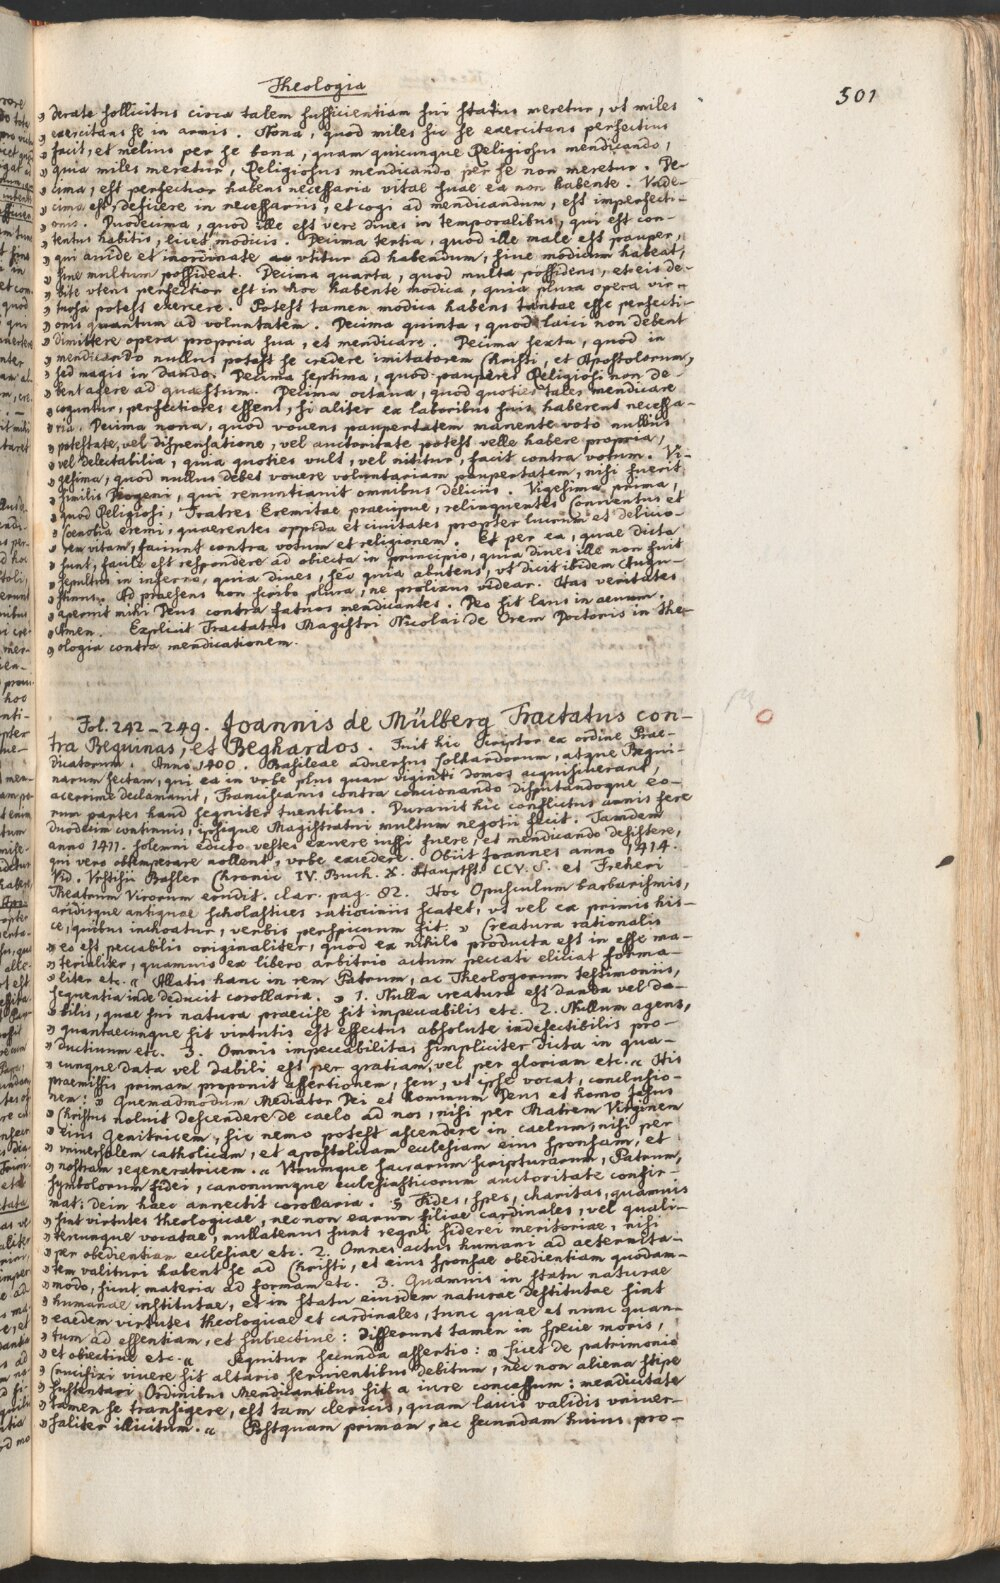 Theologia
501
» derate sollicitus circa talem sufficientiam sui status meretur, vt miles
» exercitans se in armis. Nona, quod miles sic se exercitans perfectius
» facit, et melius per se bona, quam quicunque Religiosus mendicando,
» quia miles meretur, Religiosus mendicando per se non meretur. De-
» cima, est perfectior habens necessaria vitae suae ea non habente. Vnde-
» cima est, deficere in necessariis, et cogi ad mendicandum, est imperfecti-
» onis. Duodecima, quod ille est vere diues in temporalibus, qui est con-
» tentus habitis, licet modicis. Decima tertia, quod ille male est pauper,
» qui auide et inordinate vtitur ad habendum, siue modicum habeat,
» siue multum possideat. Decima quarta, quod multa possidens, et eis de-
» bite vtens perfectior est in hoc habente modica, quia plura opera vir-
» tuosa potest exercere. Potest tamen modica habens tantae esse perfecti-
» onis quantum ad voluntatem. Decima quinta, quod laici non debent
» dimittere opera propria sua, et mendicare. Decima sexta, quod in
» mendicando nullus potest se credere imitatorem Christi, et Apostolorum,
» sed magis in dando. Decima septima, quod pauperes Religiosi non de-
» bent agere ad quaestum. Decima octaua, quod quoties tales mendicare
» coguntur, perfectiores essent, si aliter ex laboribus suis haberent necessa-
» ria. Decima nona, quod vouens paupertatem manente voto nullius
» potestate, vel dispensatione, vel auctoritate potest velle habere propria,
» vel delectabilia, quia quoties vult, vel nititur, facit contra votum. Vi-
» gesima, quod nullus debet vouere voluntariam paupertatem, nisi fuerit
» similis Diogeni, qui renuntiauit omnibus deliciis. Vigesima prima,
» quod Religiosi, Fratres Eremitae praecipue, relinquentes Conuentus et
» Coenobia eremi, quaerentes oppida et ciuitates propter lucrum et delicio-
» sam vitam, faciunt contra votum et religionem. Et per ea, quae dicta
» sunt, facile est respondere ad obiecta in principio, quia diues ille non fuit
» sepultus in inferno, quia diues, sed quia abutens, vt dicit ibidem Augu-
» stinus. Ad praesens non scribo plura, ne prolixus videar. Has veritates
» aperuit mihi Deus contra fatuos mendicantes. Deo sit laus in aeuum.
» Amen. Explicit Tractatus Magistri Nicolai de Orem Doctoris in The-
» ologia contra mendicationem.
Fol. 242-249. Joannis de Mülberg Tractatus con-
tra Beguinas, et Beghardos. Fuit hic Scriptor ex ordine Prae-
dicatorum. Anno 1400. Basileae aduersus Lolhardorum, atque Begui-
narum sectam, qui ea in vrbe plus quam viginti domos acquisiuerant,
acerrime declamauit, Franciscanis contra concionando disputandoque eo-
rum partes haud segniter tuentibus. Durauit hic conflictus annis fere
duodecim continuis, ipsique Magistratui multum negotii fecit. Tandem
anno 1411. solemni edicto vestes exuere iussi fuere, et mendicando desistere,
qui vero obtemperare nollent, vrbe excedere. Obiit Joannes anno 1414.
Vid. Vrstisii Basler Chronic IV. Buch. X. Hauptst. CCV. S. et Freheri
Theatrum Virorum erudit. clar. pag. 82. Hoc Opusculum barbarismis,
aridisque antiquae scholastices ratiociniis scatet, vt vel ex primis his-
ce, quibus inchoatur, verbis perspicuum fit. » Creatura rationalis
» eo est peccabilis originaliter, quod ex nihilo producta est in esse ma-
» terialiter, quamuis ex libero arbitrio actum peccati eliciat forma-
» liter etc. « Allatis hanc in rem Patrum, ac Theologorum testimoniis,
sequentia inde deducit corollaria. » 1. Nulla creatura est danda vel da-
» bilis, quae sui natura praecise sit impeccabilis etc. 2. Nullum agens,
» quantaecunque sit virtutis est effectus absolute indefectibilis pro-
» ductiuum etc. 3. Omnis impeccabilitas simpliciter dicta in qua-
» cunque data vel dabili est per gratiam, vel per gloriam etc. « His
praemissis primam proponit assertionem, seu, vt ipse vocat, conclusio-
nem: » Quemadmodum Mediator Dei et hominum Deus et homo Jesus
» Christus noluit descendere de caelo ad nos, nisi per Matrem Virginem
» eius Genitricem, sic nemo potest ascendere in caelum, nisi per
» vniuersalem catholicam, et apostolicam ecclesiam eius sponsam, et
» nostram regeneratricem. « Vtrumque sacrarum scripturarum, Patrum,
symbolorum fidei, canonumque ecclesiasticorum auctoritate confir-
mat: dein haec annectit corollaria. » Fides, spes, charitas, quamuis
» sint virtutes theologicae, nec non earum filiae cardinales, vel quali-
» tercunque vocatae, nullatenus sunt regni siderei meritoriae, nisi
» per obedientiam ecclesiae etc. 2. Omnes actus humani ad aeternita-
» tem valituri habent se ad Christi, et eius sponsae obedientiam quodam-
» modo, sicut materia ad formam etc. 3. Quamuis in statu naturae
» humanae institutae, et in statu eiusdem naturae destitutae sint
» eaedem virtutes theologicae et cardinales, tunc quae et nunc quan-
» tum ad essentiam, et subiectiue: differunt tamen in specie moris,
» et obiectiue etc. « Sequitur secunda assertio: » Licet de patrimonio
» Crucifixi viuere sit altario seruientibus debitum, nec non aliena stipe
» sustentari Ordinibus Mendicantibus sit a iure concessum: mendicitate
» tamen se transigere, est tam clericis, quam laicis validis vniuer-
» saliter illicitum. « Postquam primam, ac secundam huius pro-